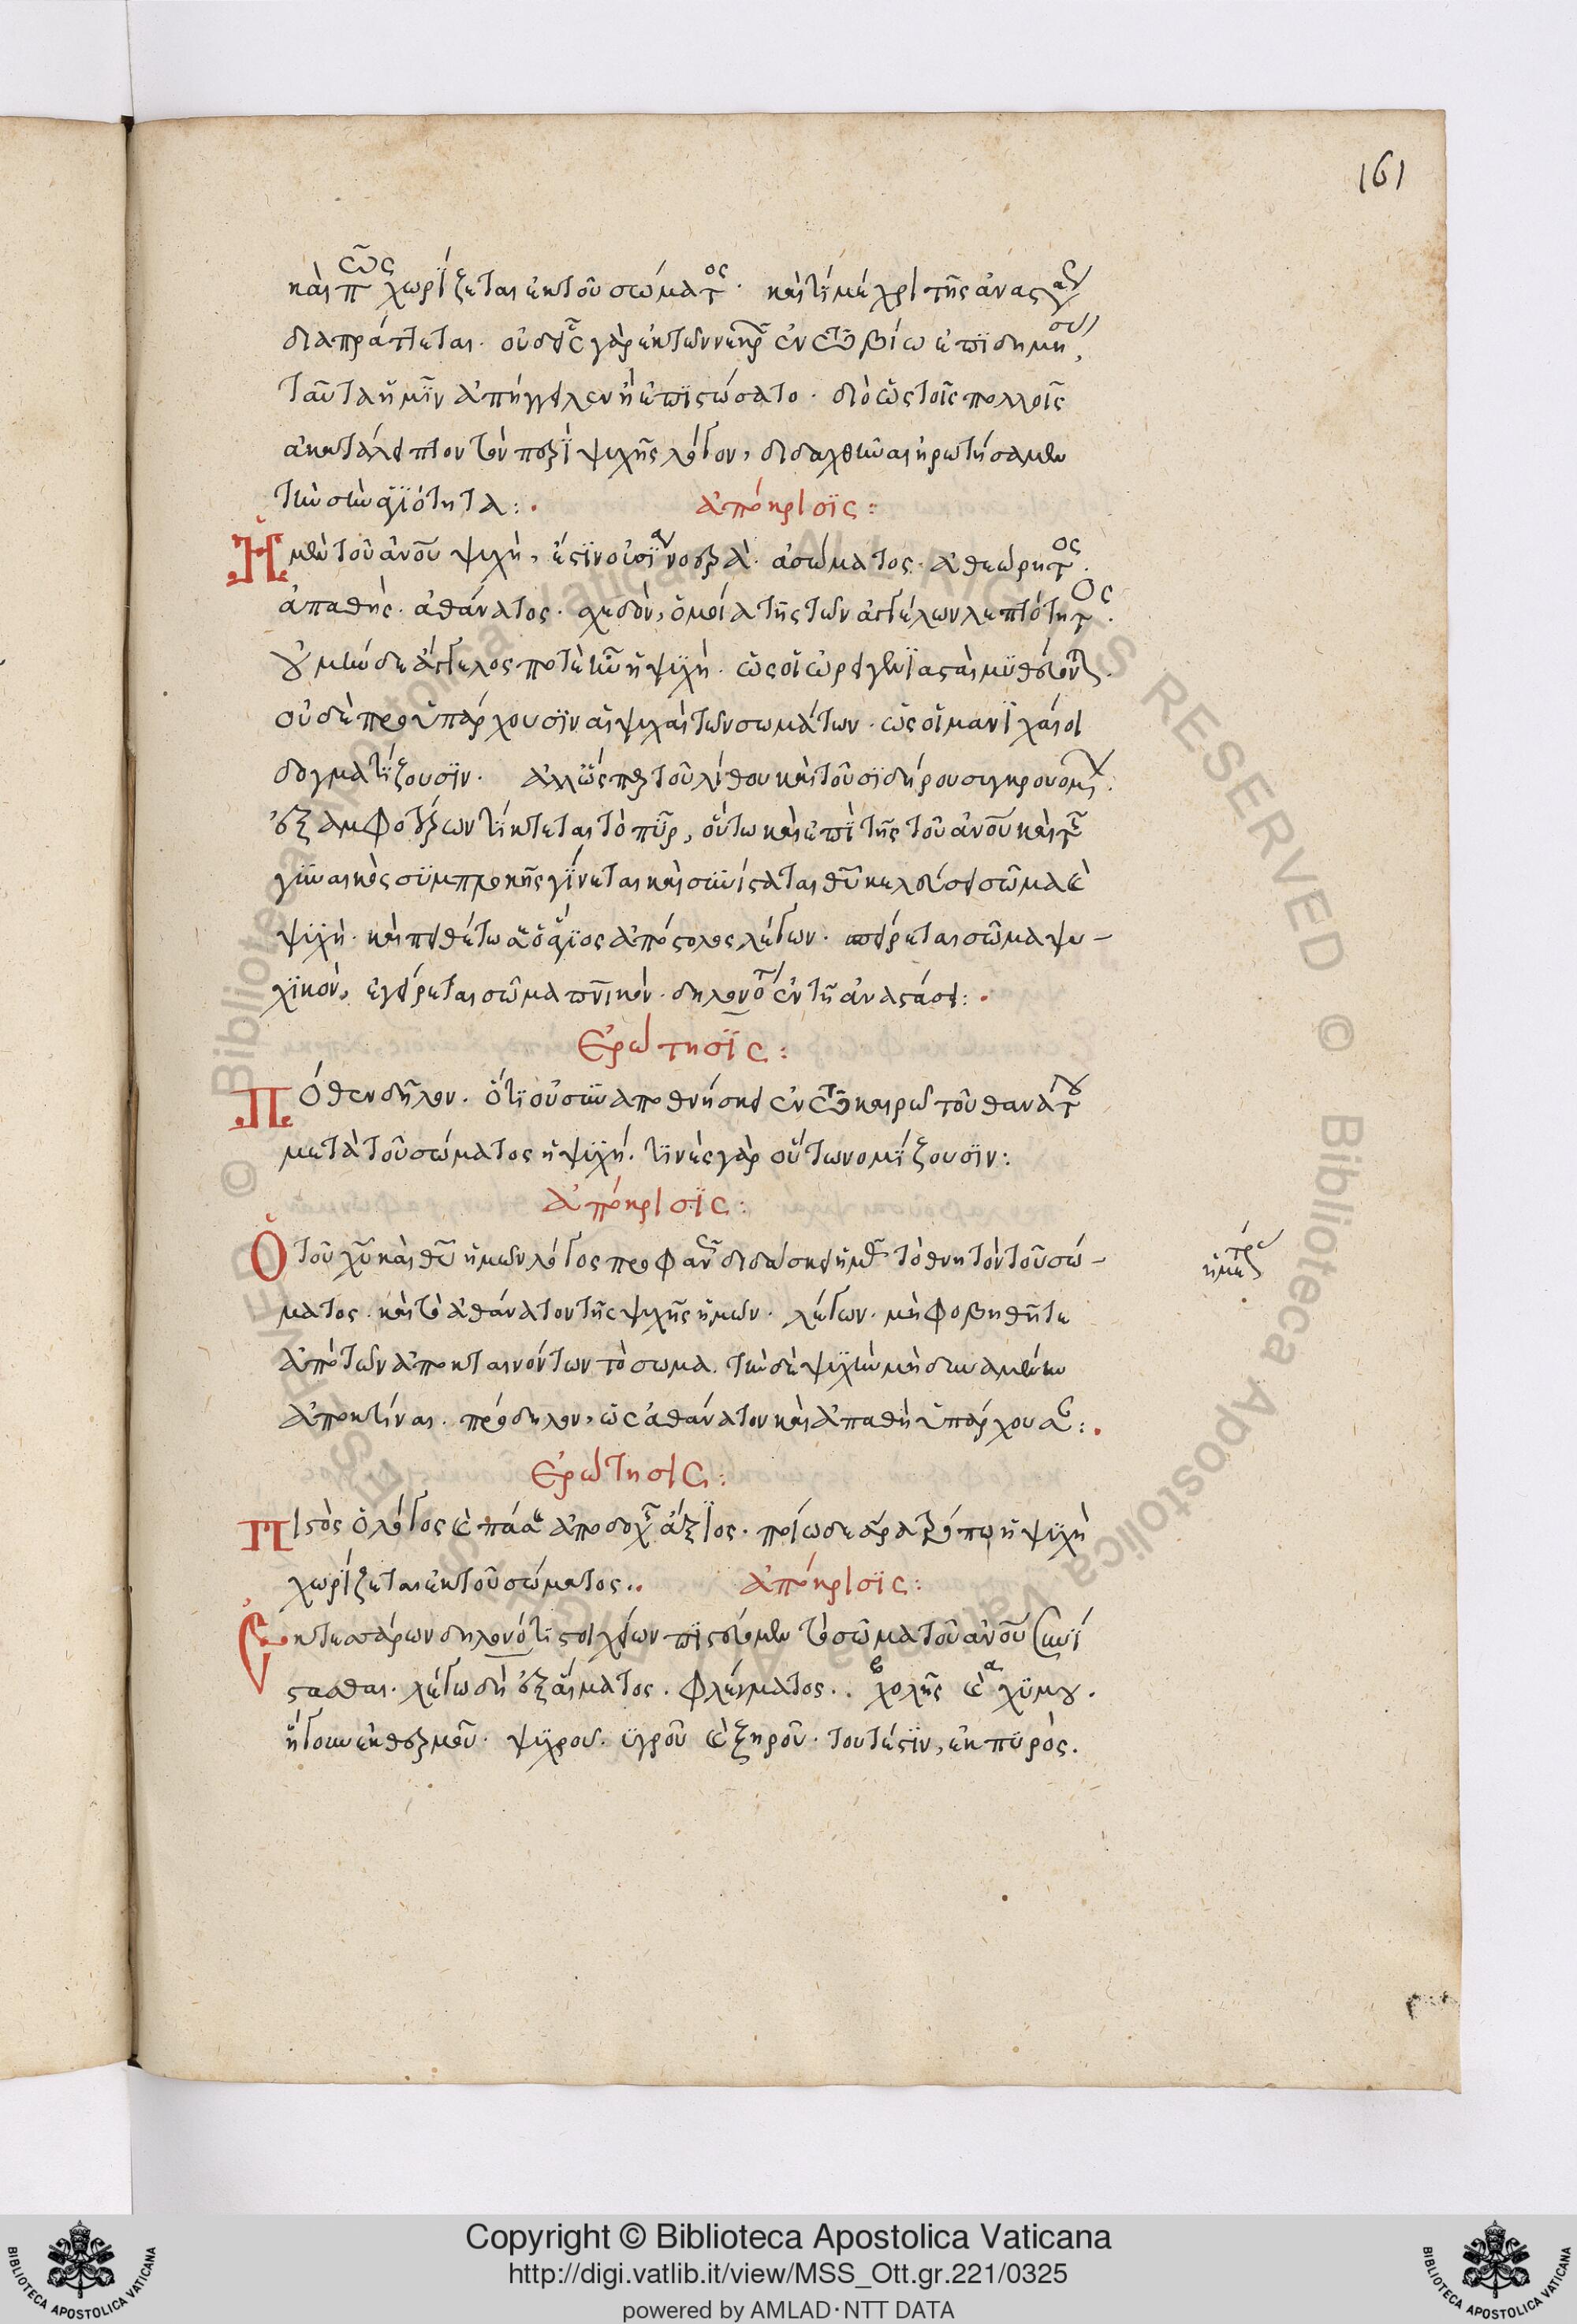 161
καὶ πῶς χωρίζεται ἐκ τοῦ σώματος· καὶ τί μέχρι τῆς ἀναστάσεως
διαπράττεται. οὐδεὶς γὰρ ἐκ τῶν νεκρῶν ἐν τῶ βίω ἐπιδημήσας,
ταῦτα ἡμῖν ἀπήγγειλεν ἢ ἐπιστώσατο. διὸ ὡς τοῖς πολλοῖς
ἀκατάλειπτον τὸν περὶ ψυχῆς λόγον, διδαχθῆναι ἠρωτήσαμεν
τὴν σὴν ἁγιότητα:
ἀπόκρισις:
Ἡ μὲν τοῦ ἀνου ψυχὴ, ἐστὶν οὐσία νοερὰ· ἀσώματος· ἀθεώρητος·
ἀπαθής· ἀθάνατος· σχεδὸν, ὁμοία τῆς τῶν ἀγγέλων λεπτότητος·
οὐ μὴν δὲ ἄγγελος ποτὲ ἦν ἡ ψυχὴ· ὡς οἱ ὠριγενιασταὶ μυθεύονται.
οὐδὲ προϋπάρχουσιν αἱ ψυχαὶ τῶν σωμάτων· ὡς οἱ μανιχαίοι
δογματίζουσιν. ἀλλ' ὥσπερ τοῦ λίθου καὶ τοῦ σιδήρου συγκρουομένων
ἐξ ἀμφοτέρων τίκτεται τὸ πῦρ, οὕτω καὶ ἐπὶ τῆς τοῦ ἀνου καὶ τῆς
γυναικὸς συμπλοκῆς γίνεται καὶ συνίσταται θυ κελεύσει σῶμα καὶ
ψυχὴ· καὶ πειθέτω σε ὁ ἅγιος ἀπόστολος λέγων· σπείρεται σῶμα ψυ-
χικὸν, ἐγείρεται σῶμα πνικόν· δηλονότι ἐν τῇ ἀναστάσει:
Ἐρώτησις:
Πόθεν δῆλον. ὅτι οὐ συναποθνήσκει ἐν τῶ καιρῶ τοῦ θανάτου
μετὰ τοῦ σώματος ἡ ψυχή. τινὲς γὰρ οὕτω νομίζουσιν:
ἀπόκρισις:
Ὁ τοῦ χυ καὶ θυ ἡμῶν λόγος προφανῶς διδάσκει ἡμᾶς τὸ θνητὸν τοῦ σώ-
ματος· καὶ τὸ ἀθάνατον τῆς ψυχῆς ἡμῶν· λέγων· μὴ φοβηθῆτε
ἀπὸ τῶν ἀποκταινόντων τὸ σωμα. τὴν δὲ ψυχὴν μὴ δυναμένων
ἀποκτίναι. πρόδηλον, ὡς ἀθάνατον καὶ ἀπαθῆ ὑπάρχουσαν:
Ἐρώτησις:
Πιστὸς ὁ λόγος καὶ πάσης ἀποδοχῆς ἄξιος· ποίω δὲ ἄρα τρόπω ἡ ψυχὴ
χωρίζεται ἐκ τοῦ σώματος..
ἀπόκρισις:
Ἐκ τεσσάρων δηλονότι στοιχείων πιστεύομεν τὸ σῶμα τοῦ ἀνου συνί
στασθαι. λέγω δὴ ἐξ αἵματος· φλέγματος.. χολῆς καὶ χυμοῦ.
ἤγουν ἐκ θερμοῦ· ψυχρου· ὑγροῦ καὶ ξηροῦ· τουτέστιν, ἐκ πυρὸς.
Copyright © Biblioteca Apostolica Vaticana
http://digi.vatlib.it/view/MSS_Ott.gr.221/0325
powered by AMLAD·NTT DATA